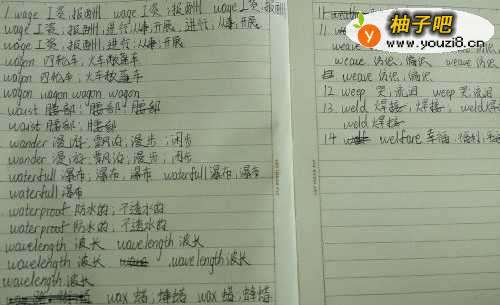 1. wage 工资,报酬 wage 工资,报酬 wage 工资,报酬
wage 工资,报酬,进行,从事,开展,进行,从事,开展
wage 工资,报酬,进行,从事,开展
wagon 四轮车,火车敞篷车
wagon 四轮车;火车敞篷车
wagon wagon wagon wagon
waist 腰部;腰部;腰部
waist 腰部;腰部
wander 漫游,飘泊,漫步,闲步
wander 漫游,飘泊,漫步,闲步
waterfull 瀑布,瀑布,瀑布 waterfull 瀑布,瀑布
waterfull 瀑布
waterproof 防水的,不透水的
waterproof 防水的;不透水的
wavelength 波长 wavelength 波长
wavelength 波长 wavelength 波长
wavelength 波长
wax 蜡,蜂蜡 wax 蜡,蜂蜡
11.
weave
weave
weave 纺织,编织 weave 纺织
weave 纺织,编织
12. weep 哭,流泪 weep 哭,流泪
13. weld 焊接,焊接, weld 焊接
weld 焊接
14. welfare 幸福
柚子吧
www.youzi8.cn